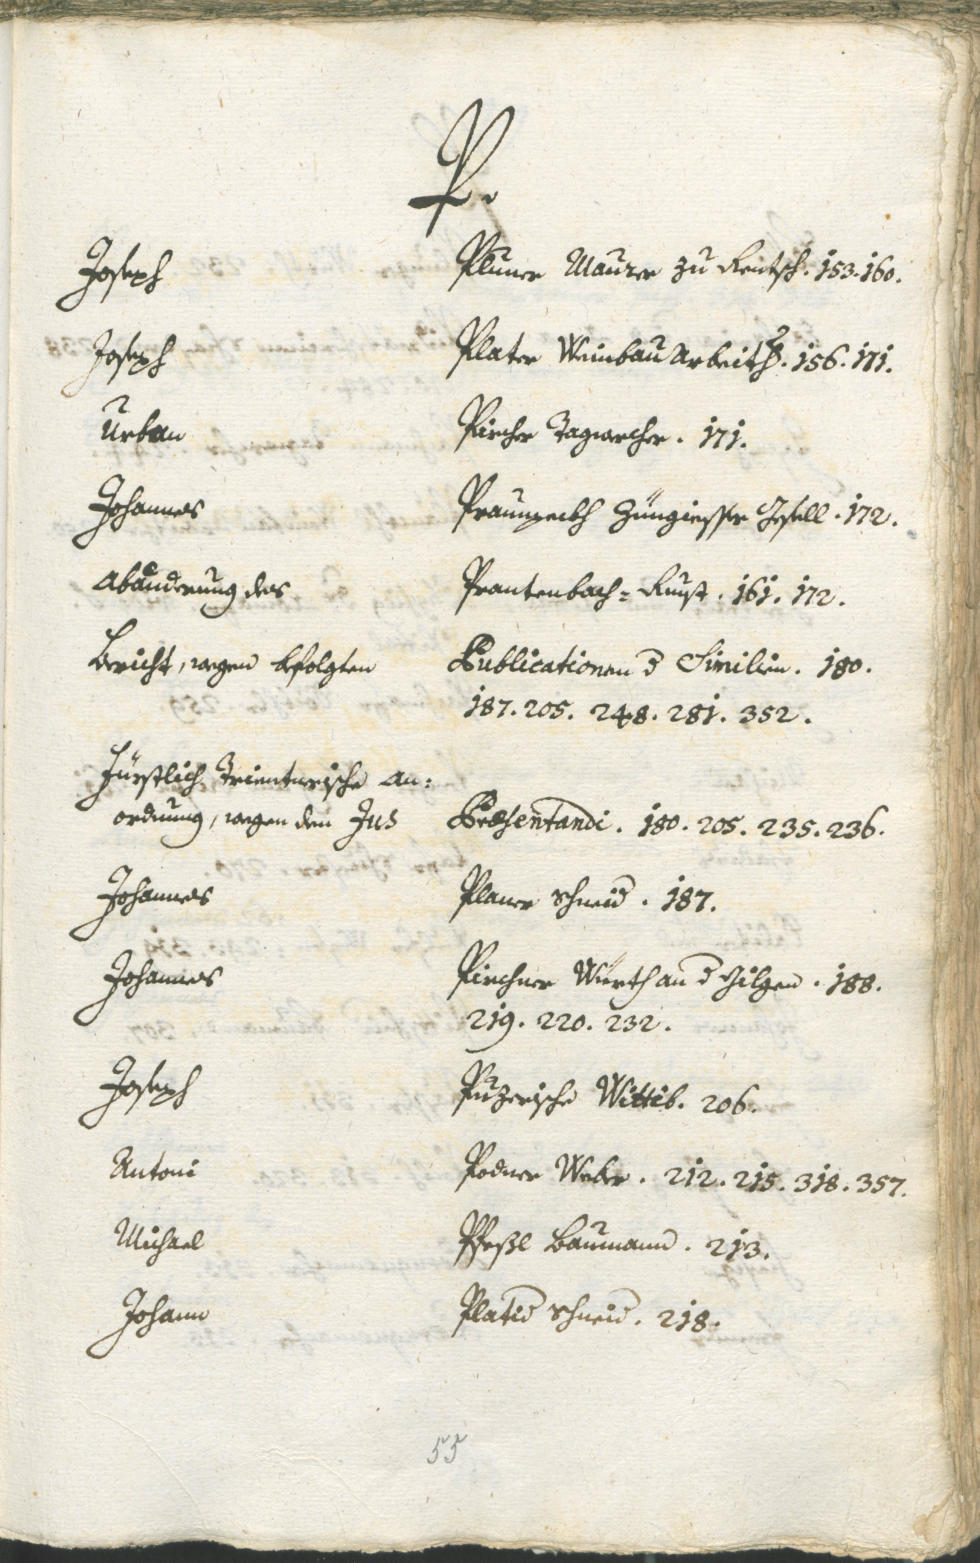 P.
Joseph Pluner Maurer zu Rentsch. 153. 160.
Joseph Plater Weinbau Arbeiths. 156. 171.
Urban Pircher Tagwercher. 171.
Johannes Züngiesser Gesell. 172.
Abänderung des Prantenbach= Runst. 161. 172.
Bericht, wegen befolgten Publicationen d Similien. 180.
187. 205. 248. 281. 352.
Fürstlich Trienterische An:
ordnung, wegen dem Jus Præsentandi. 180. 205. 235. 236.
Johannes Planer Schneid. 187.
Johannes Pirchner Würth an d Zilgen. 188.
219. 220. 232.
Joseph Puzerische Wittib. 206.
Antoni Podner Weber. 212. 215. 318. 357.
Michael Baumann. 213.
Johann Platid Schneid. 218.
55